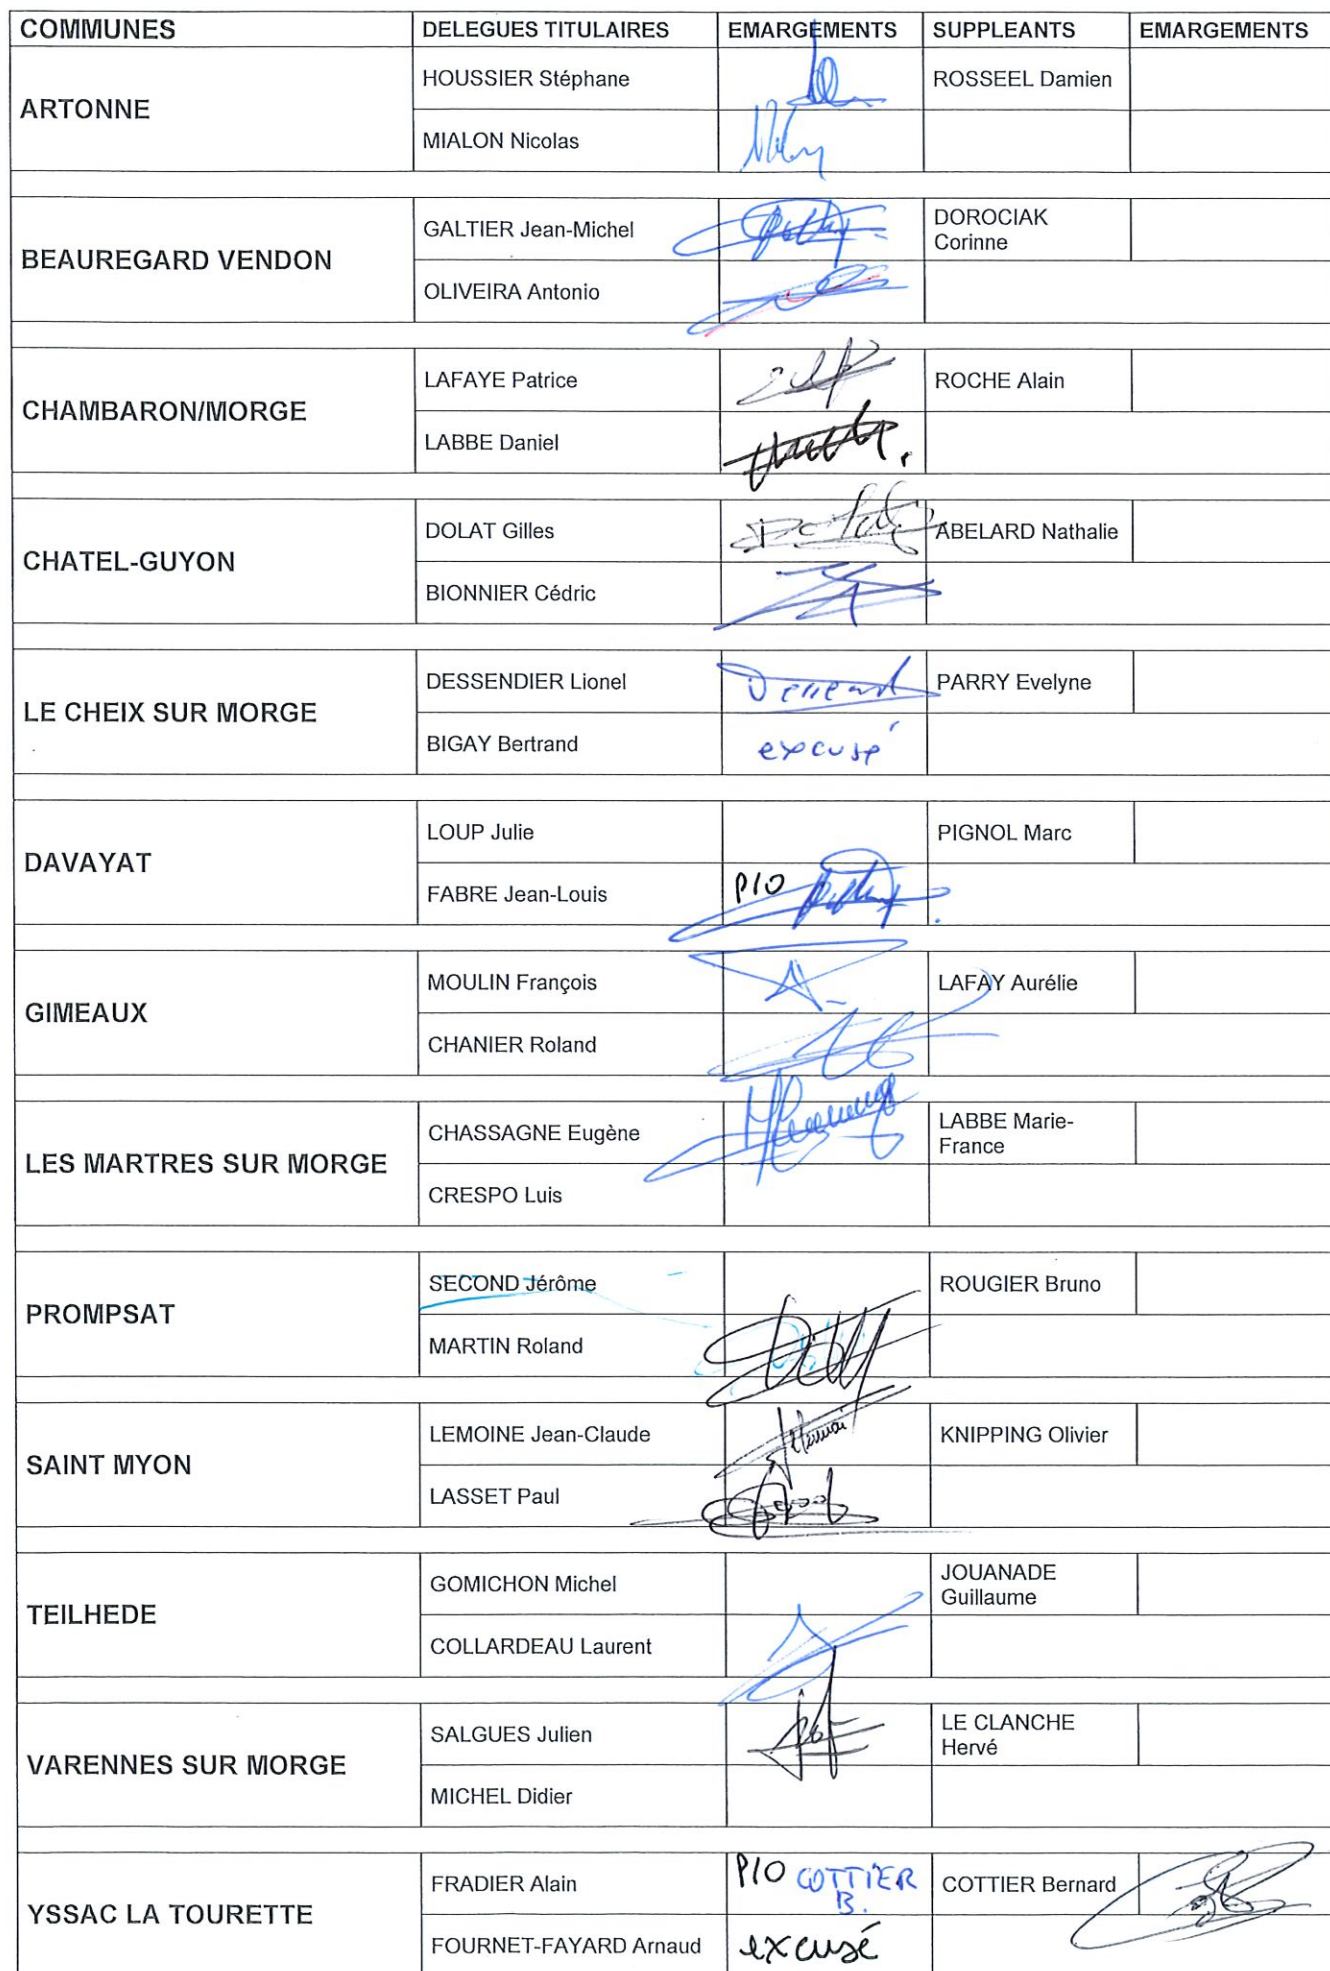 COMMUNES DELEGUES TITULAIRES EMARGEMENTS SUPPLEANTS EMARGEMENTS
ARTONNE
HOUSSIER Stéphane ROSSEEL Damien
MIALON Nicolas
BEAUREGARD VENDON
GALTIER Jean-Michel DOROCIAK
Corinne
OLIVEIRA Antonio
CHAMBARON/MORGE
LAFAYE Patrice ROCHE Alain
LABBE Daniel
CHATEL-GUYON
DOLAT Gilles ABELARD Nathalie
BIONNIER Cédric
LE CHEIX SUR MORGE
DESSENDIER Lionel PARRY Evelyne
BIGAY Bertrand excusé
DAVAYAT
LOUP Julie PIGNOL Marc
FABRE Jean-Louis P/O
GIMEAUX
MOULIN François LAFAY Aurélie
CHANIER Roland
LES MARTRES SUR MORGE
CHASSAGNE Eugène LABBE Marie-
France
CRESPO Luis
PROMPSAT
SECOND Jérôme ROUGIER Bruno
MARTIN Roland
SAINT MYON
LEMOINE Jean-Claude KNIPPING Olivier
LASSET Paul
TEILHEDE
GOMICHON Michel JOUANADE
Guillaume
COLLARDEAU Laurent
VARENNES SUR MORGE
SALGUES Julien LE CLANCHE
Hervé
MICHEL Didier
YSSAC LA TOURETTE
FRADIER Alain P/O COTTIER B. COTTIER Bernard
FOURNET-FAYARD Arnaud excusé